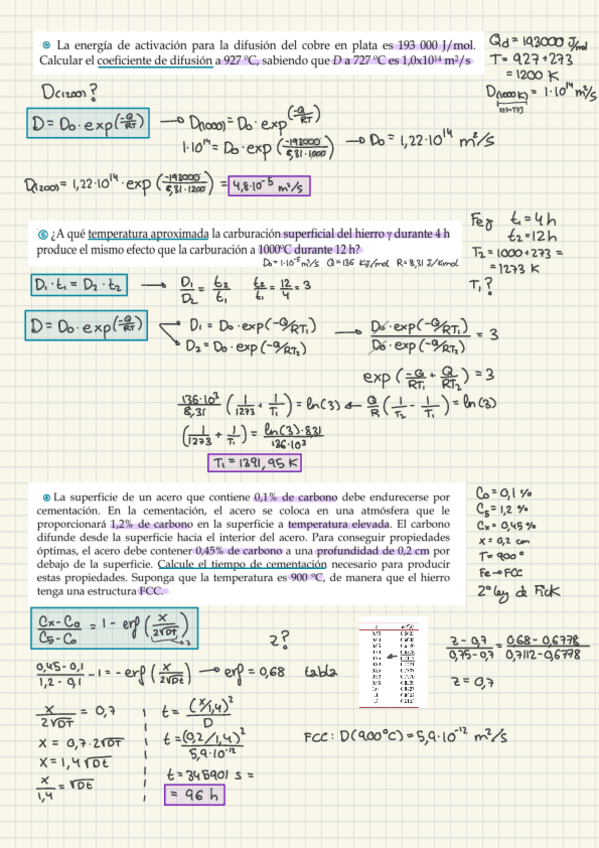 La energía de activación para la difusión del cobre en plata es 193 000 J/mol.
Calcular el coeficiente de difusión a 927 ºC, sabiendo que D a 727 ºC es 1,0x10¹⁴ m²/s
Qd = 193000 J/mol
T = 927+273
= 1200 K
D(1000K) = 1·10¹⁴ m²/s
727+273
D(1200)?
D = D₀·exp(-Q/RT) → D(1000) = D₀·exp(-Q/RT)
1·10¹⁴ = D₀·exp(-193000/8,31·1000) → D₀ = 1,22·10¹⁴ m²/s
D(1200) = 1,22·10¹⁴·exp(-193000/8,31·1200) = 4,8·10⁻⁵ m²/s
¿A qué temperatura aproximada la carburación superficial del hierro γ durante 4 h
produce el mismo efecto que la carburación a 1000ºC durante 12 h?
D₀ = 1·10⁻⁵ m²/s Q = 136 KJ/mol R = 8,31 J/Kmol
Feγ t₁ = 4h
t₂ = 12h
T₂ = 1000+273 =
= 1273 K
T₁?
D₁·t₁ = D₂·t₂ → D₁/D₂ = t₂/t₁ t₂/t₁ = 12/4 = 3
D = D₀·exp(-Q/RT) D₁ = D₀·exp(-Q/RT₁) → D₀·exp(-Q/RT₁)/D₀·exp(-Q/RT₂) = 3
D₂ = D₀·exp(-Q/RT₂)
exp(-Q/RT₁ + Q/RT₂) = 3
136·10³/8,31 (1/1273 + 1/T₁) = ln(3) ← Q/R (1/T₂ - 1/T₁) = ln(3)
(1/1273 + 1/T₁) = ln(3)·8,31/136·10³
T₁ = 1391,95 K
La superficie de un acero que contiene 0,1% de carbono debe endurecerse por
cementación. En la cementación, el acero se coloca en una atmósfera que le
proporcionará 1,2% de carbono en la superficie a temperatura elevada. El carbono
difunde desde la superficie hacia el interior del acero. Para conseguir propiedades
óptimas, el acero debe contener 0,45% de carbono a una profundidad de 0,2 cm por
debajo de la superficie. Calcule el tiempo de cementación necesario para producir
estas propiedades. Suponga que la temperatura es 900 ºC, de manera que el hierro
tenga una estructura FCC.
C₀ = 0,1 %
Cs = 1,2 %
Cx = 0,45 %
x = 0,2 cm
T = 900º
Fe → FCC
2º ley de Fick
Cx-C₀/Cs-C₀ = 1 - erf(x/2√DT)
z?
0,45-0,1/1,2-0,1 - 1 = -erf(x/2√Dt) → erf = 0,68 tabla
z-0,7/0,75-0,7 = 0,68-0,6778/0,7112-0,6778
z = 0,7
x/2√DT = 0,7
x = 0,7·2√DT
x = 1,4√Dt
x/1,4 = √Dt
t = (x/1,4)²/D
t = (0,2/1,4)²/5,9·10⁻¹²
t = 345901 s =
= 96 h
FCC: D(900ºC) = 5,9·10⁻¹² m²/s